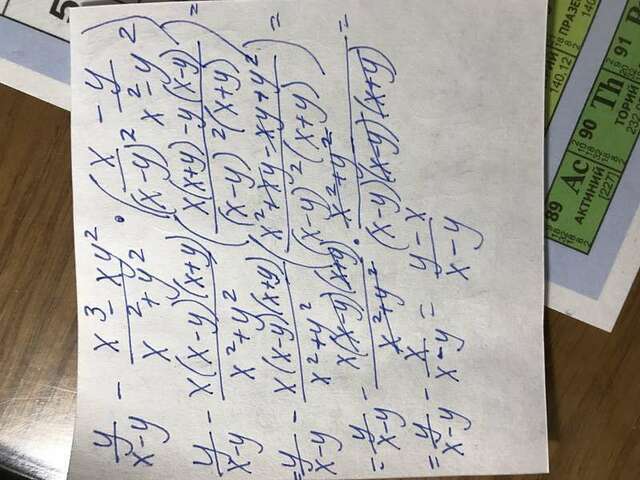 y/(x-y) - (x³-xy²)/(x²+y²) · (x/(x-y)² - y/(x²-y²))
y/(x-y) - x(x-y)(x+y)/(x²+y²) (x(x+y)-y(x-y)/(x-y)²(x+y)) =
= y/(x-y) - x(x-y)(x+y)/(x²+y²) (x²+xy-xy+y²/(x-y)²(x+y)) =
= y/(x-y) - x(x-y)(x+y)/(x²+y²) · x²+y²/(x-y)(x-y)(x+y) =
= y/(x-y) - x/(x-y) = (y-x)/(x-y)
5
140,12
ПРАЗЕ
140
89 Ac
АКТИНИЙ
[227]
90 Th
ТОРИЙ
232
91